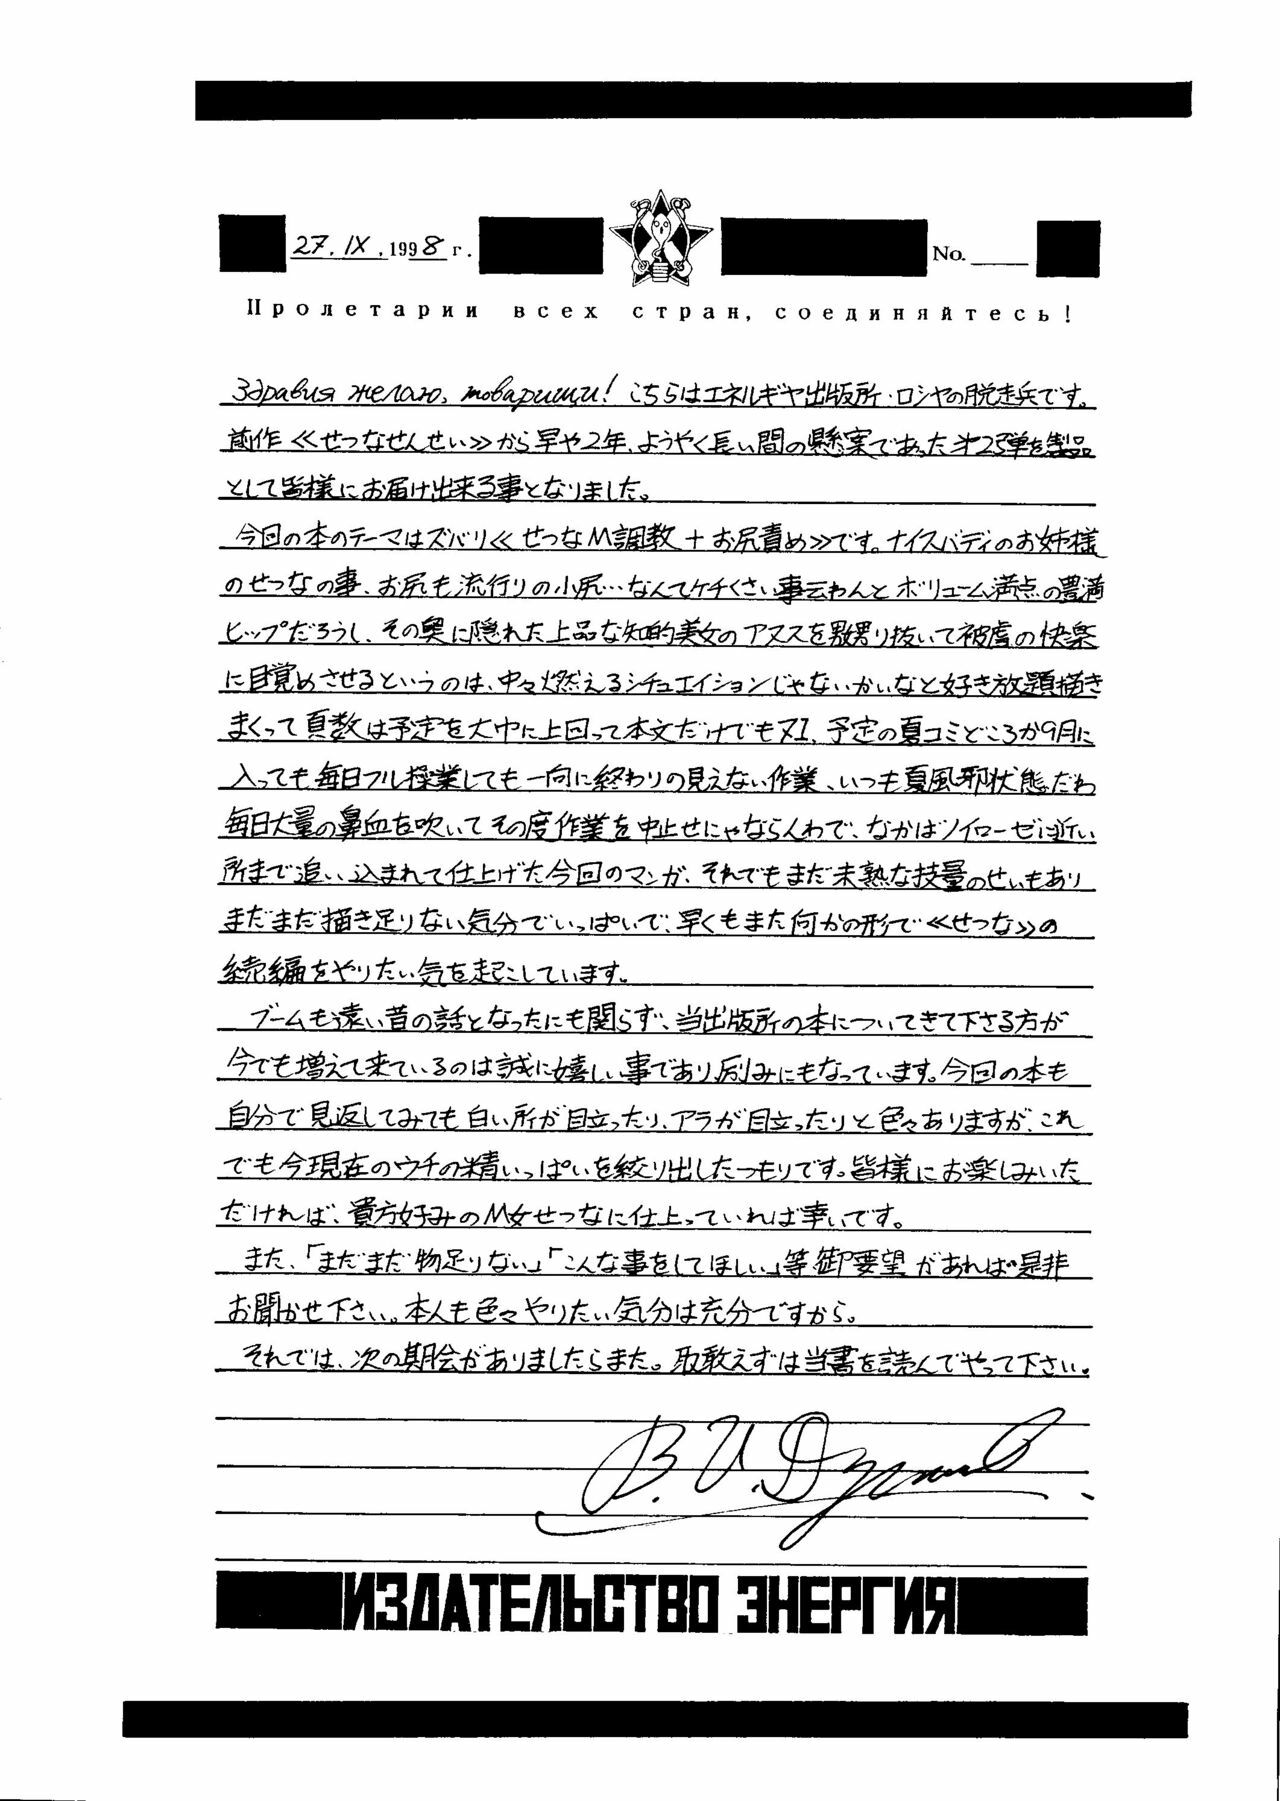 27. IX, 1998 г.
No.
Пролетарии всех стран, соединяйтесь!
Здравия желаю, товарищи! こちらはエネルギヤ出版所・ロシヤの脱走兵です。
前作≪せつなせんせい≫から早や2年、ようやく長い間の懸案であった才2弾を製品
として皆様にお届け出来る事となりました。
今回の本のテーマはズバリ≪せつなM調教+お尻責め≫です。ナイスバディのお姉様
のせつなの事、お尻も流行りの小尻…なんてケチくさい事云わんとボリューム満点の豊満
ヒップだろうし、その奥に隠れた上品な知的美女のアヌスを嬲り抜いて被虐の快楽
に目覚めさせるというのは、中々燃えるシチュエイションじゃないかいなと好き放題描き
まくって頁数は予定を大巾に上回って本文だけでも、予定の夏コミどころか9月に
入っても毎日フル操業しても一向に終わりの見えない作業、いつも夏風邪状態だわ
毎日大量の鼻血を吹いてその度作業を中止せにゃならんわで、なかばノイローゼに近い
所まで追い込まれて仕上げた今回のマンガ、それでもまだ未熟な技量のせいもあり
まだまだ描き足りない気分でいっぱいで、早くもまた何かの形で≪せつな≫の
続編をやりたい気を起こしています。
ブームも遠い昔の話となったにも関らず、当出版所の本についてきて下さる方が
今でも増えて来ているのは誠に嬉しい事であり励みにもなっています。今回の本も
自分で見返してみても白い所が目立ったり、アラが目立ったりと色々ありますが、これ
でも今現在のウチの精いっぱいを絞り出したつもりです。皆様にお楽しみいた
だければ、貴方好みのM女せつなに仕上っていれば幸いです。
また、「まだまだ物足りない」「こんな事をしてほしい」等御要望があれば是非
お聞かせ下さい。本人も色々やりたい気分は充分ですから。
それでは、次の期会がありましたらまた。取敢えずは当書を読んでやって下さい。
В. И.
ИЗДАТЕЛЬСТВО ЭНЕРГИЯ